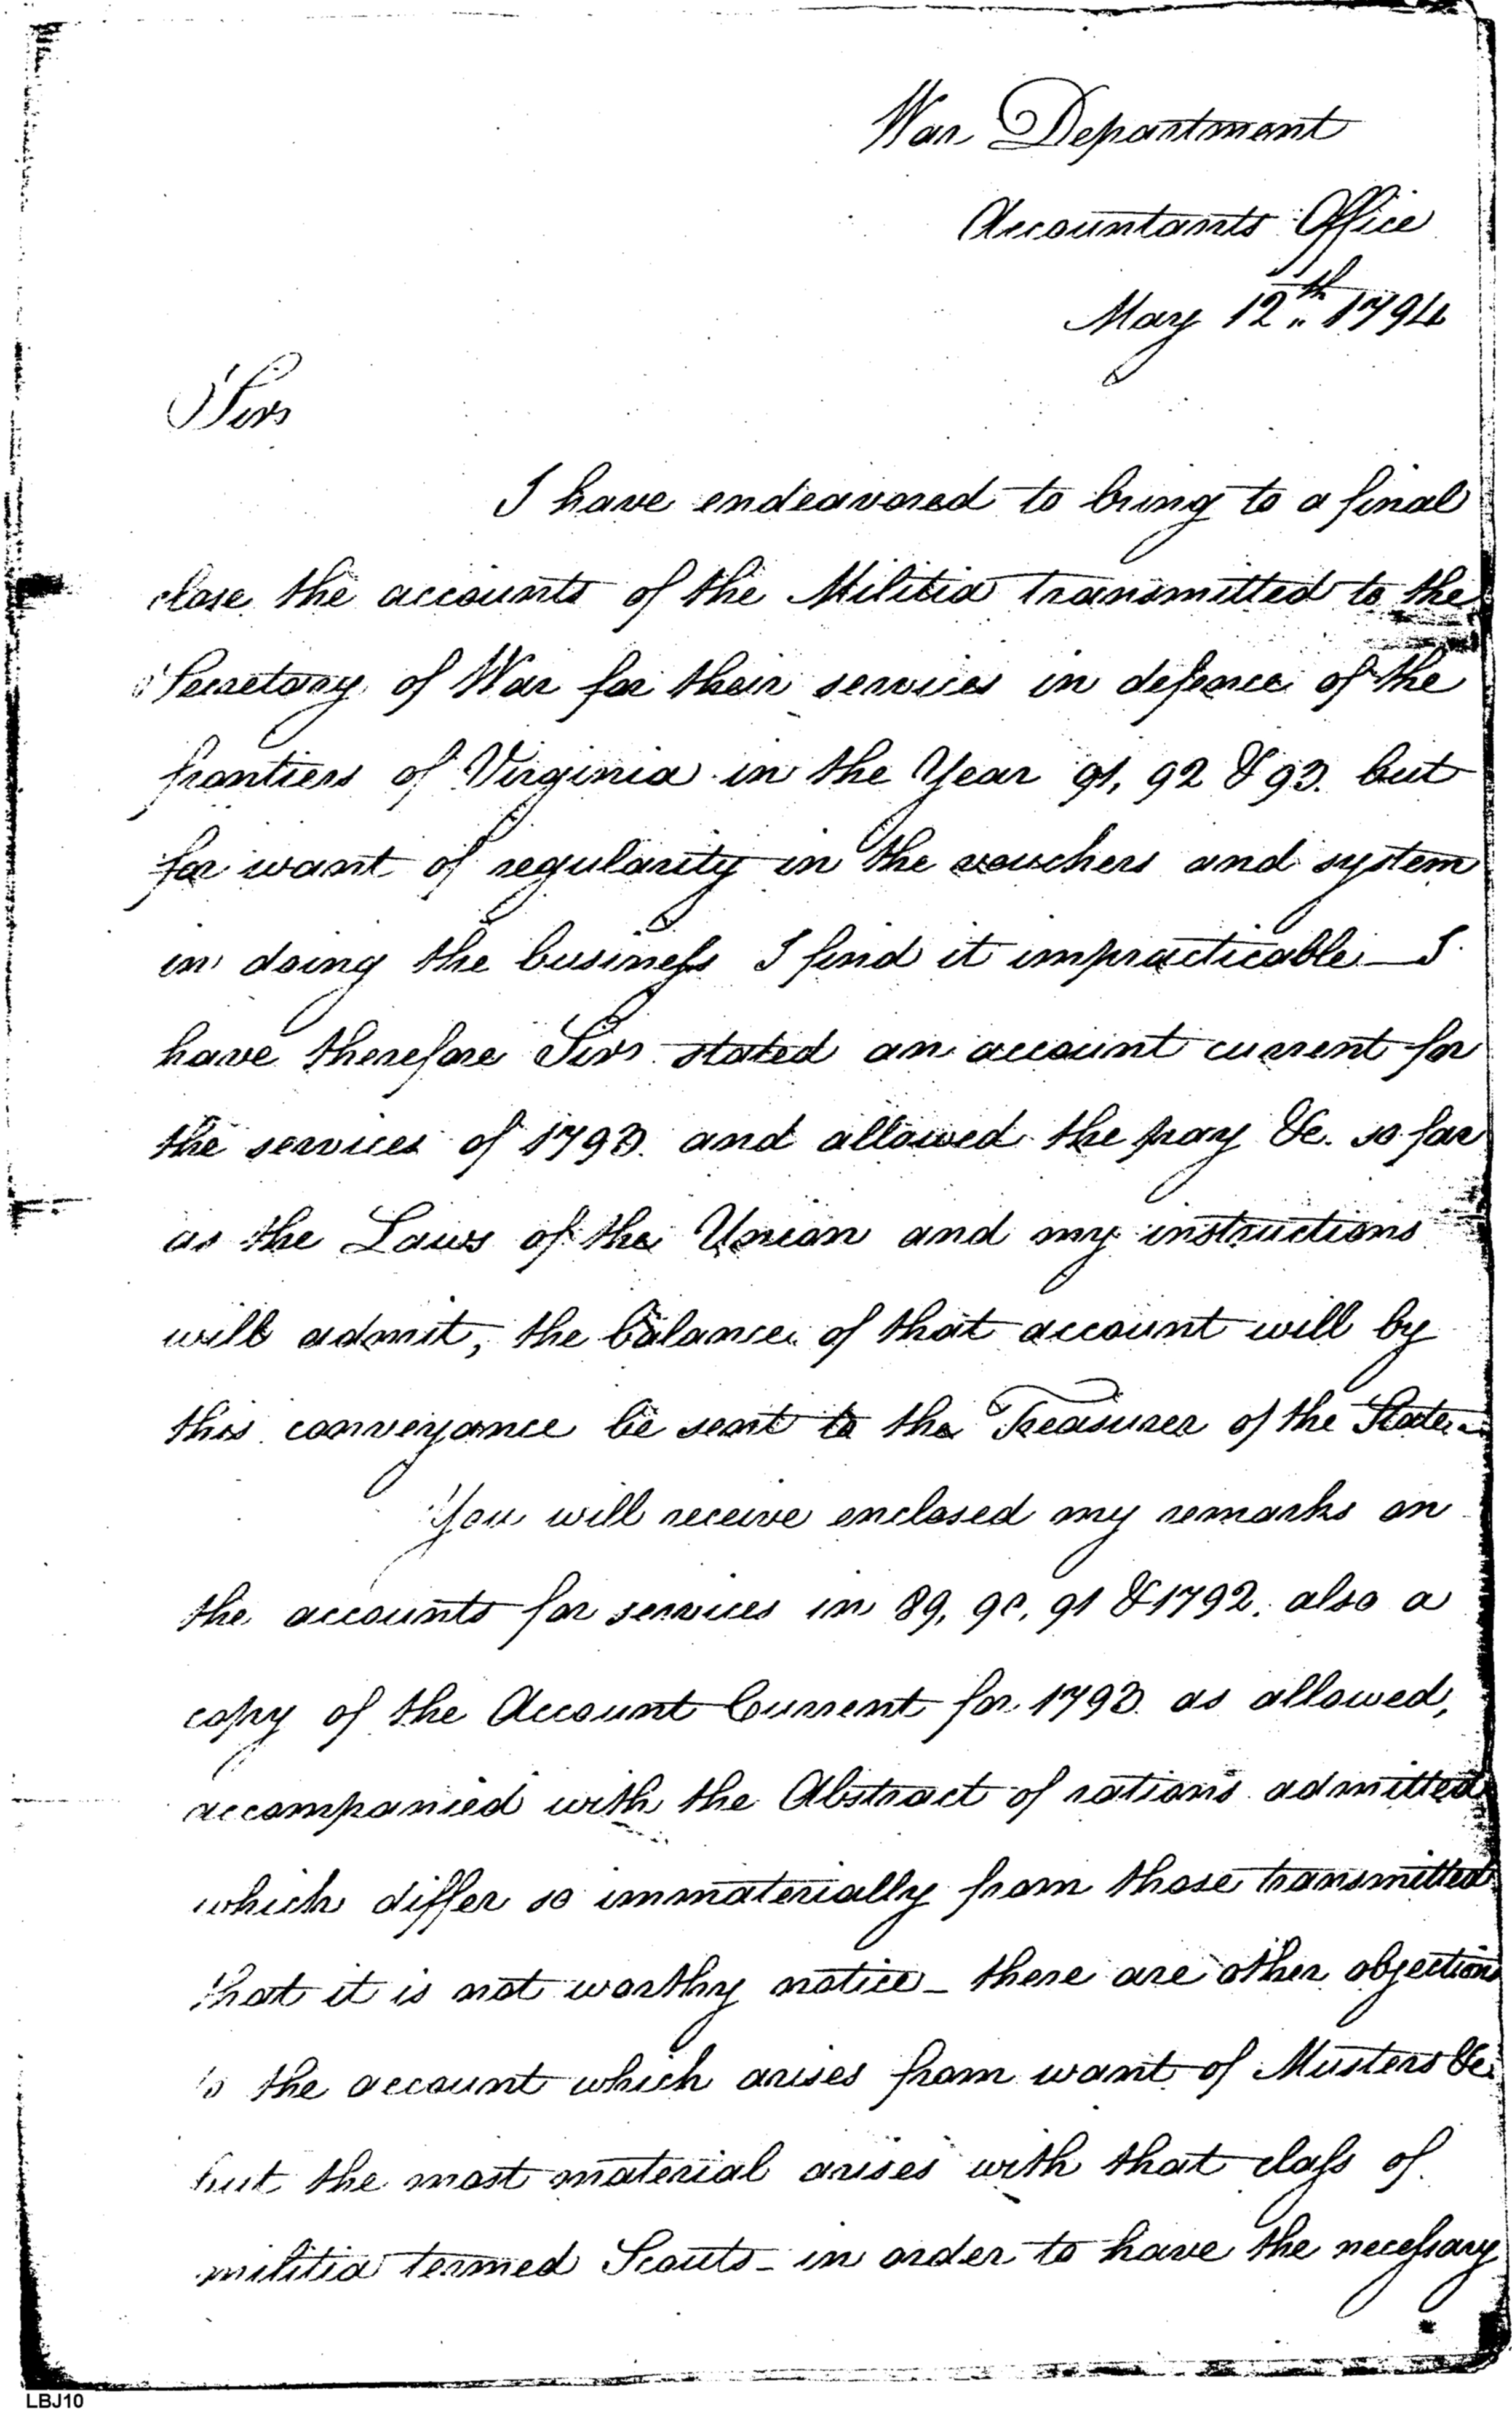 War Department
Accountants Office
May 12th 1794
Sir
I have endeavored to bring to a final
close the accounts of the Militia transmitted to the
Secretary of War for their services in defence of the
frontiers of Virginia in the Year 91, 92 & 93. but
for want of regularity in the vouchers and system
in doing the business I find it impracticable — I
have therefore Sir stated an account current for
the services of 1793. and allowed the pay &c. so far
as the Laws of the Union and my instructions
will admit, the balance of that account will by
this conveyance be sent to the Treasurer of the State —
You will receive enclosed my remarks on
the accounts for services in 89, 90, 91 & 1792. also a
copy of the Account Current for 1793. as allowed,
accompanied with the Abstract of rations admitted
which differ so immaterially from those transmitted
that it is not worthy notice — there are other objections
to the account which arises from want of Musters &c.
but the most material arises with that class of
militia termed Scouts — in order to have the necessary
LBJ10